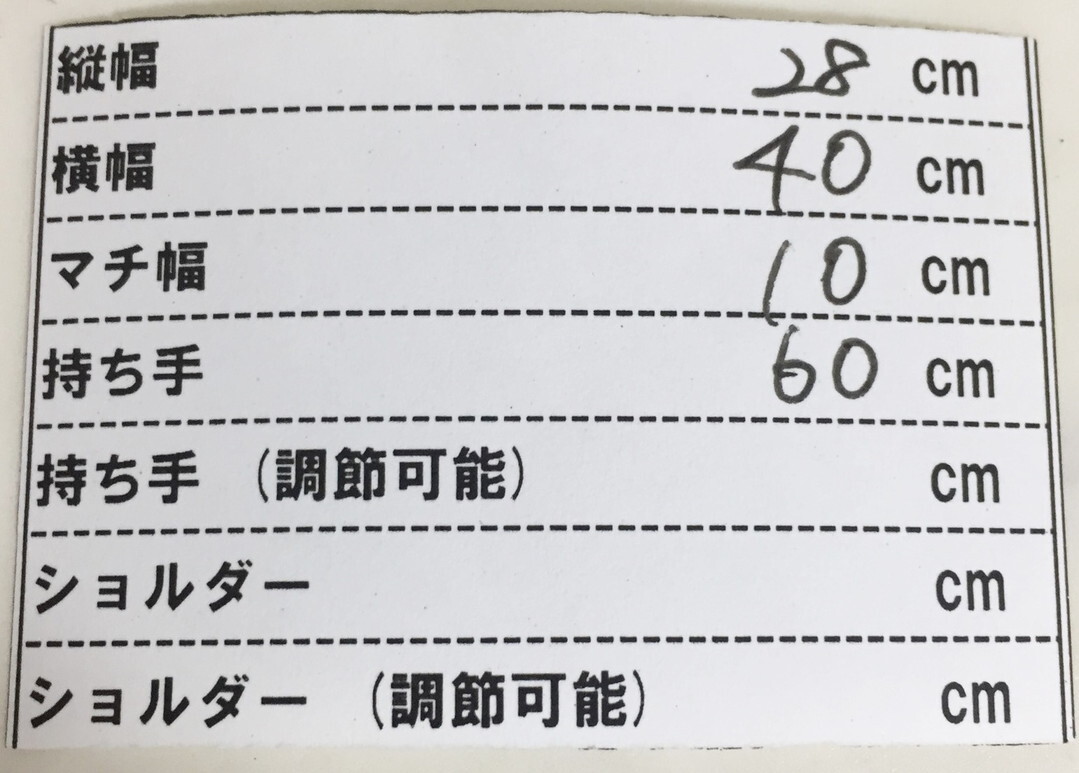 縦幅 28 cm
横幅 40 cm
マチ幅 10 cm
持ち手 60 cm
持ち手 (調節可能) cm
ショルダー cm
ショルダー (調節可能) cm